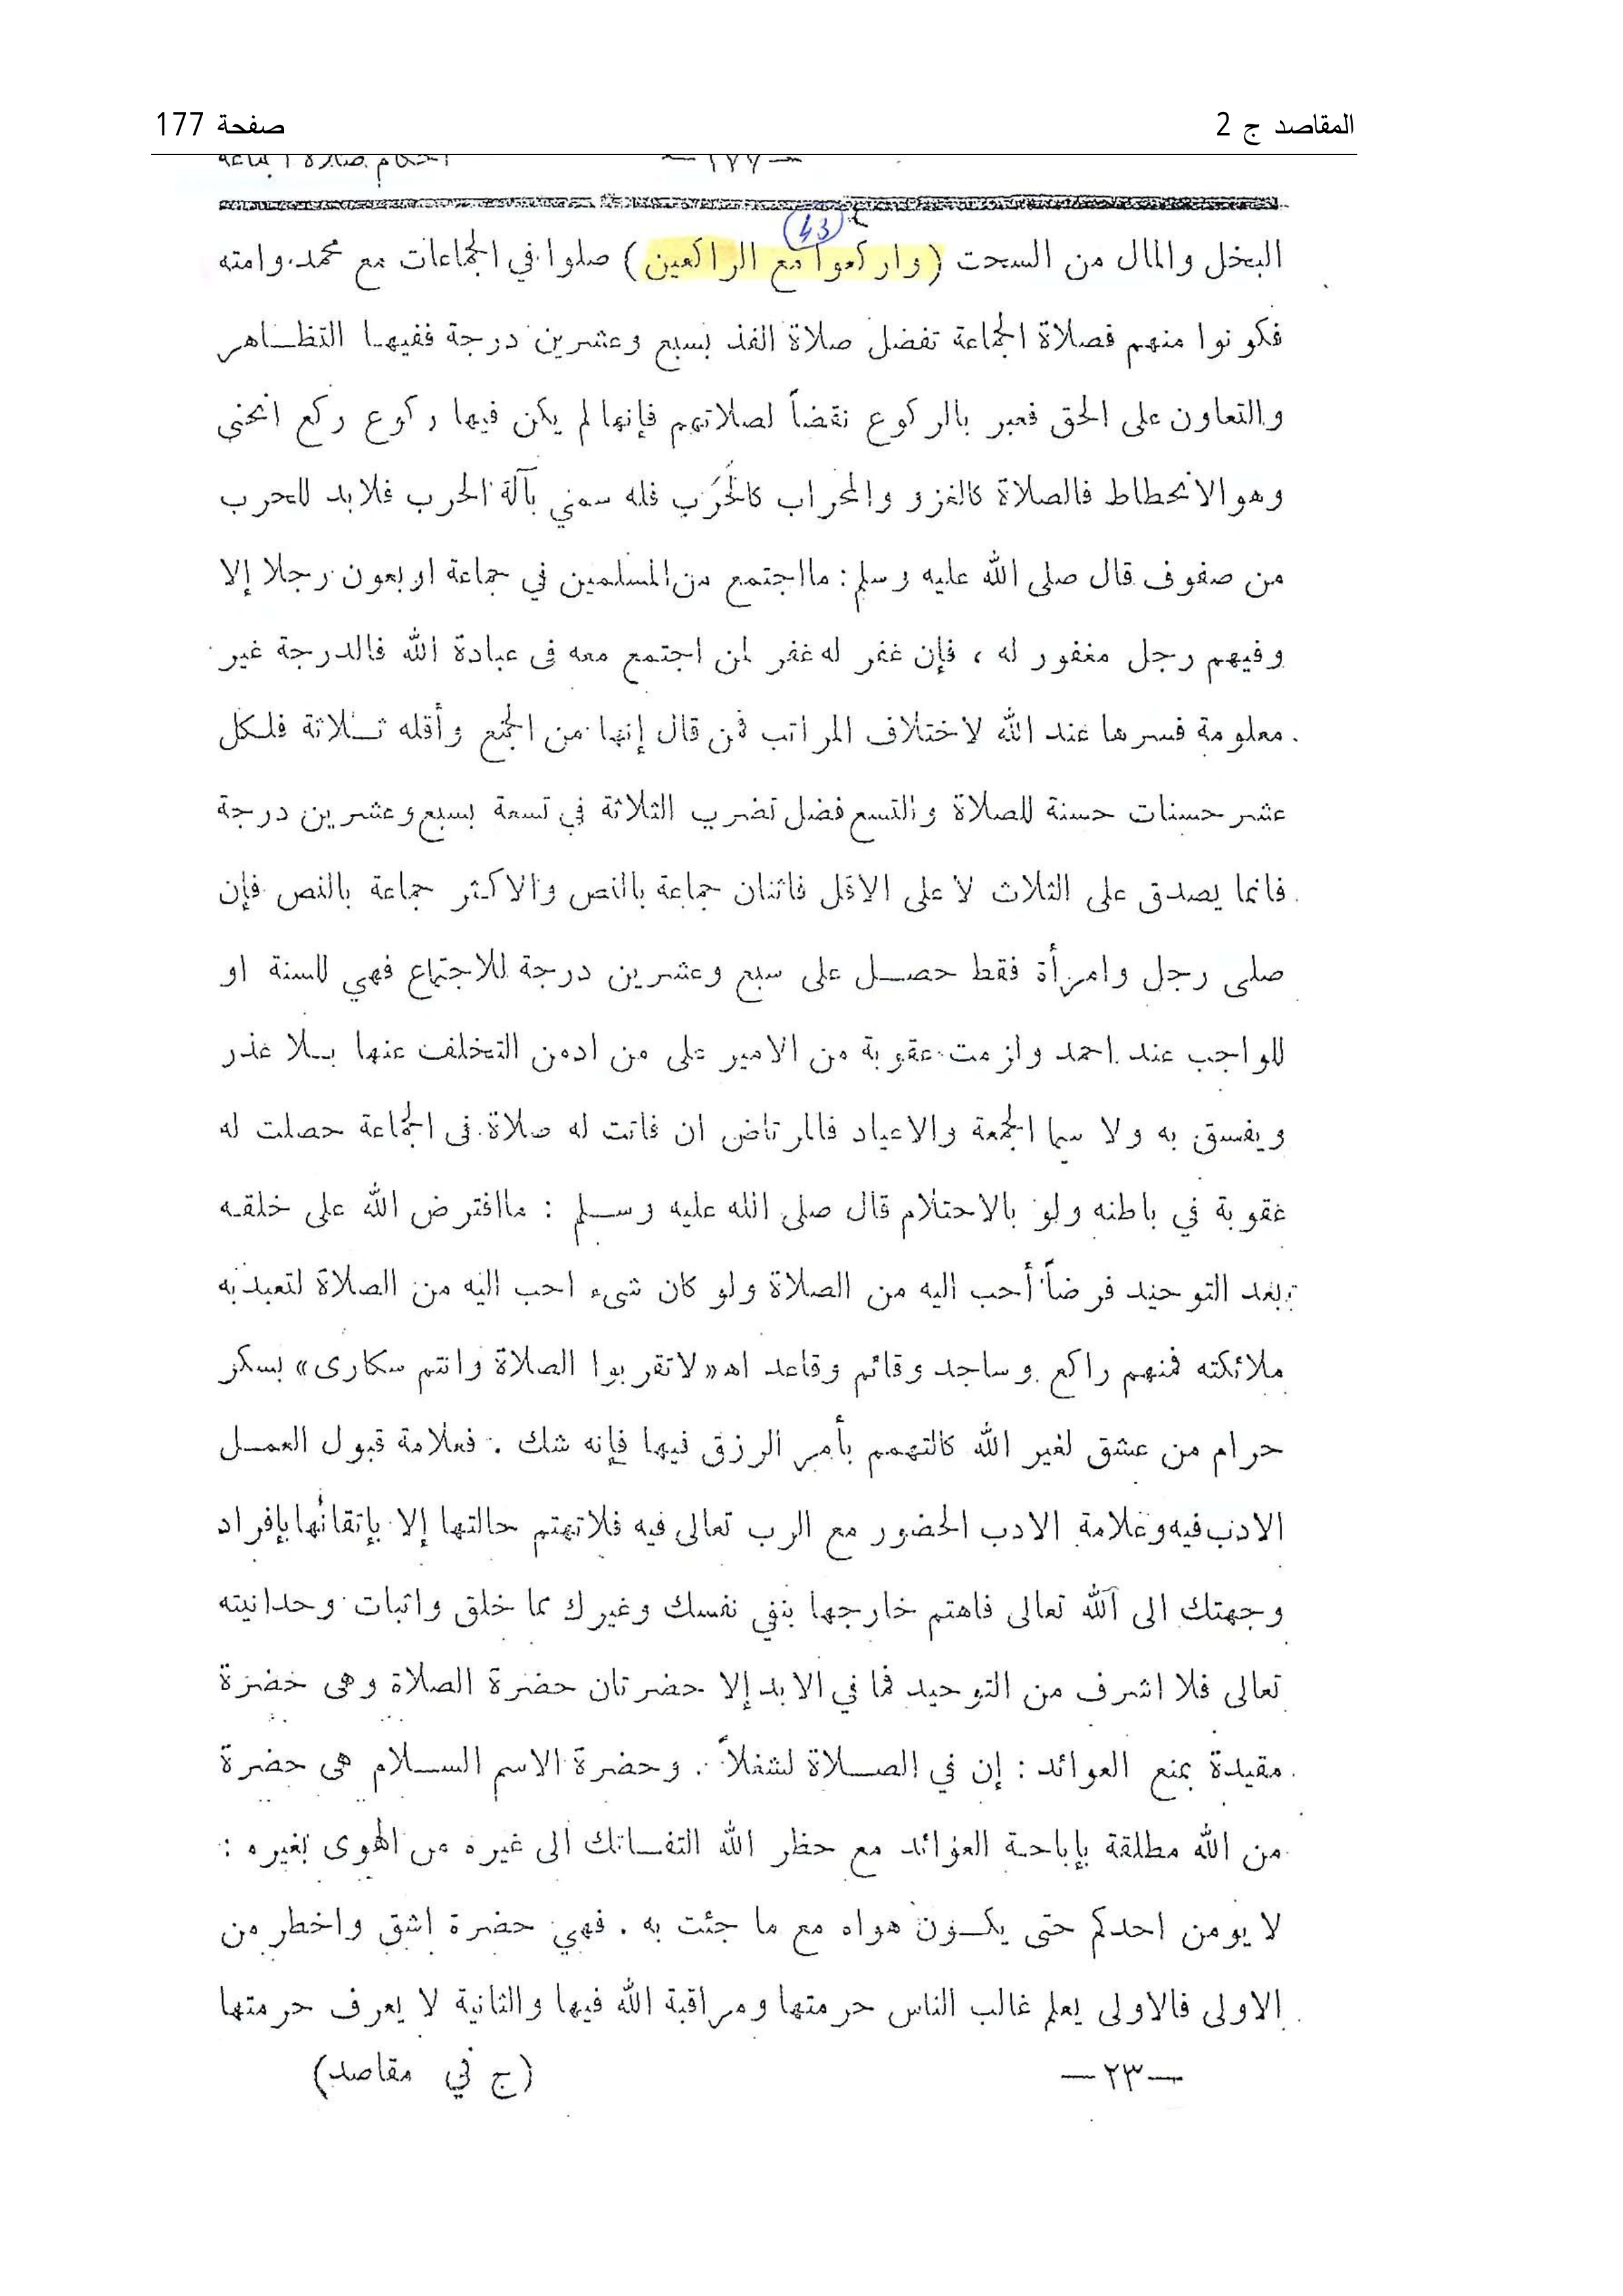 المقاصد ج 2 صفحة 177
احكام صلاة الجماعة — ١٧٧ —
43
البخل والمال من السحت (واركعوا مع الراكعين) صلوا في الجماعات مع محمد وامته
فكونوا منهم فصلاة الجماعة تفضل صلاة الفذ بسبع وعشرين درجة ففيها التظاهر
والتعاون على الحق فعبر بالركوع نقضاً لصلاتهم فإنها لم يكن فيها ركوع ركع انحنى
وهو الانحطاط فالصلاة كالغزو والمحراب كالحَرب فله سمي بآلة الحرب فلابد للحرب
من صفوف قال صلى الله عليه وسلم : ما اجتمع من المسلمين في جماعة اربعون رجلا إلا
وفيهم رجل مغفور له ، فإن غفر له غفر لمن اجتمع معه فى عبادة الله فالدرجة غير
معلومة فسرها عند الله لاختلاف المراتب فمن قال إنها من الجمع وأقله ثلاثة فلكل
عشر حسنات حسنة للصلاة والتسع فضل تضرب الثلاثة في تسعة بسبع وعشرين درجة
فانما يصدق على الثلاث لا على الاقل فاثنان جماعة بالنص والاكثر جماعة بالنص فإن
صلى رجل وامرأة فقط حصل على سبع وعشرين درجة للاجتماع فهي للسنة او
للواجب عند احمد ولزمت عقوبة من الامير على من ادمن التخلف عنها بلا عذر
ويفسق به ولا سيما الجمعة والاعياد فالمرتاض ان فاتت له صلاة فى الجماعة حصلت له
عقوبة في باطنه ولو بالاحتلام قال صلى الله عليه وسلم : ما افترض الله على خلقه
بعد التوحيد فرضاً أحب اليه من الصلاة ولو كان شىء احب اليه من الصلاة لتعبد به
ملائكته فمنهم راكع وساجد وقائم وقاعد اه «لا تقربوا الصلاة وانتم سكارى» بسكر
حرام من عشق لغير الله كالتهمم بأمر الرزق فيها فإنه شك . فعلامة قبول العمل
الادب فيه وعلامة الادب الحضور مع الرب تعالى فيه فلا تهتم حالتها إلا بإتقانها بإفراد
وجهتك الى الله تعالى فاهتم خارجها بنفي نفسك وغيرك مما خلق واثبات وحدانيته
تعالى فلا اشرف من التوحيد فما في الابد إلا حضرتان حضرة الصلاة وهى حضرة
مقيدة بمنع العوائد : إن في الصلاة لشغلاً . وحضرة الاسم السلام هى حضرة
من الله مطلقة بإباحة العوائد مع حظر الله التفساتك الى غيره من الهوى بغيره :
لا يومن احدكم حتى يكون هواه مع ما جئت به . فهي حضرة اشق واخطر من
الاولى فالاولى يعلم غالب الناس حرمتها ومراقبة الله فيها والثانية لا يعرف حرمتها
— ٢٣ — (ج في مقاصد)